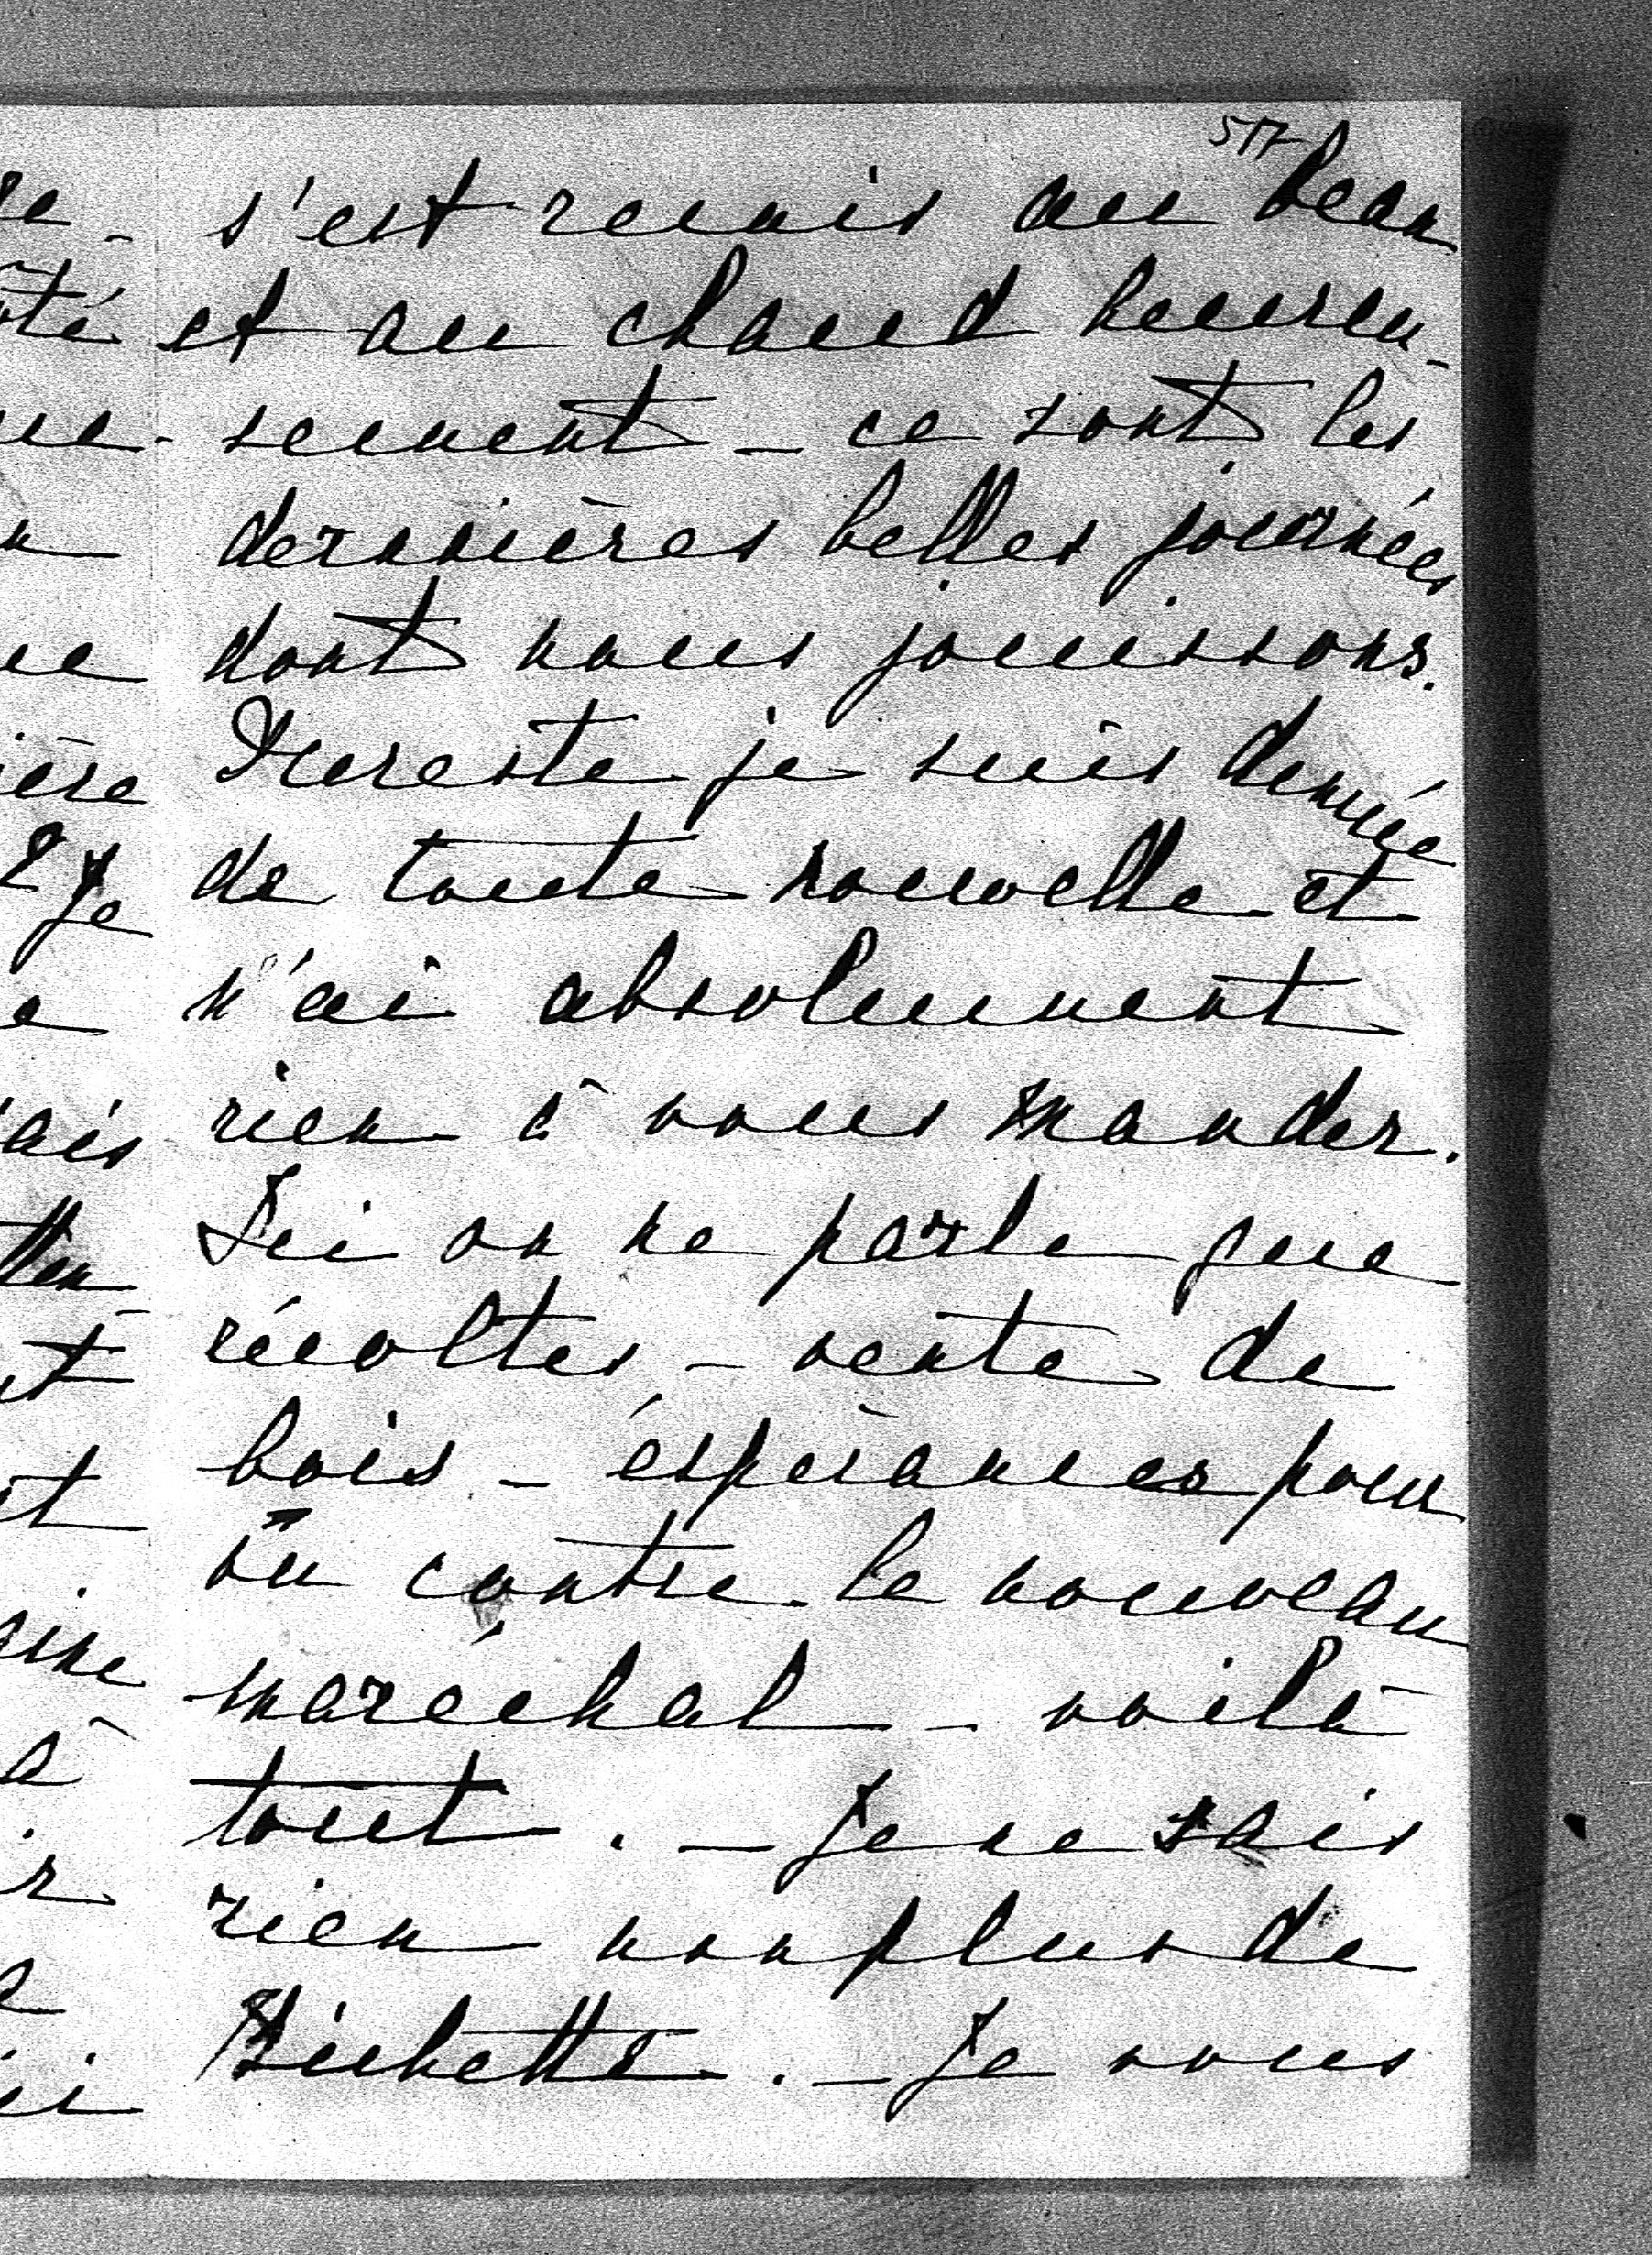 517
s'est remis au beau
et au chaud heureu-
sement _ ce sont les
dernières belles journées
dont nous jouissons.
Dureste je suis denuée
de toute nouvelle et
n'ai absolument
rien à vous mander.
Ici on ne parle que
récoltes _ vente de
bois _ éspèrances pour
ou contre le nouveau
maréchal _ voilà
tout. _ Je ne sais
rien non plus de
_ Je vous